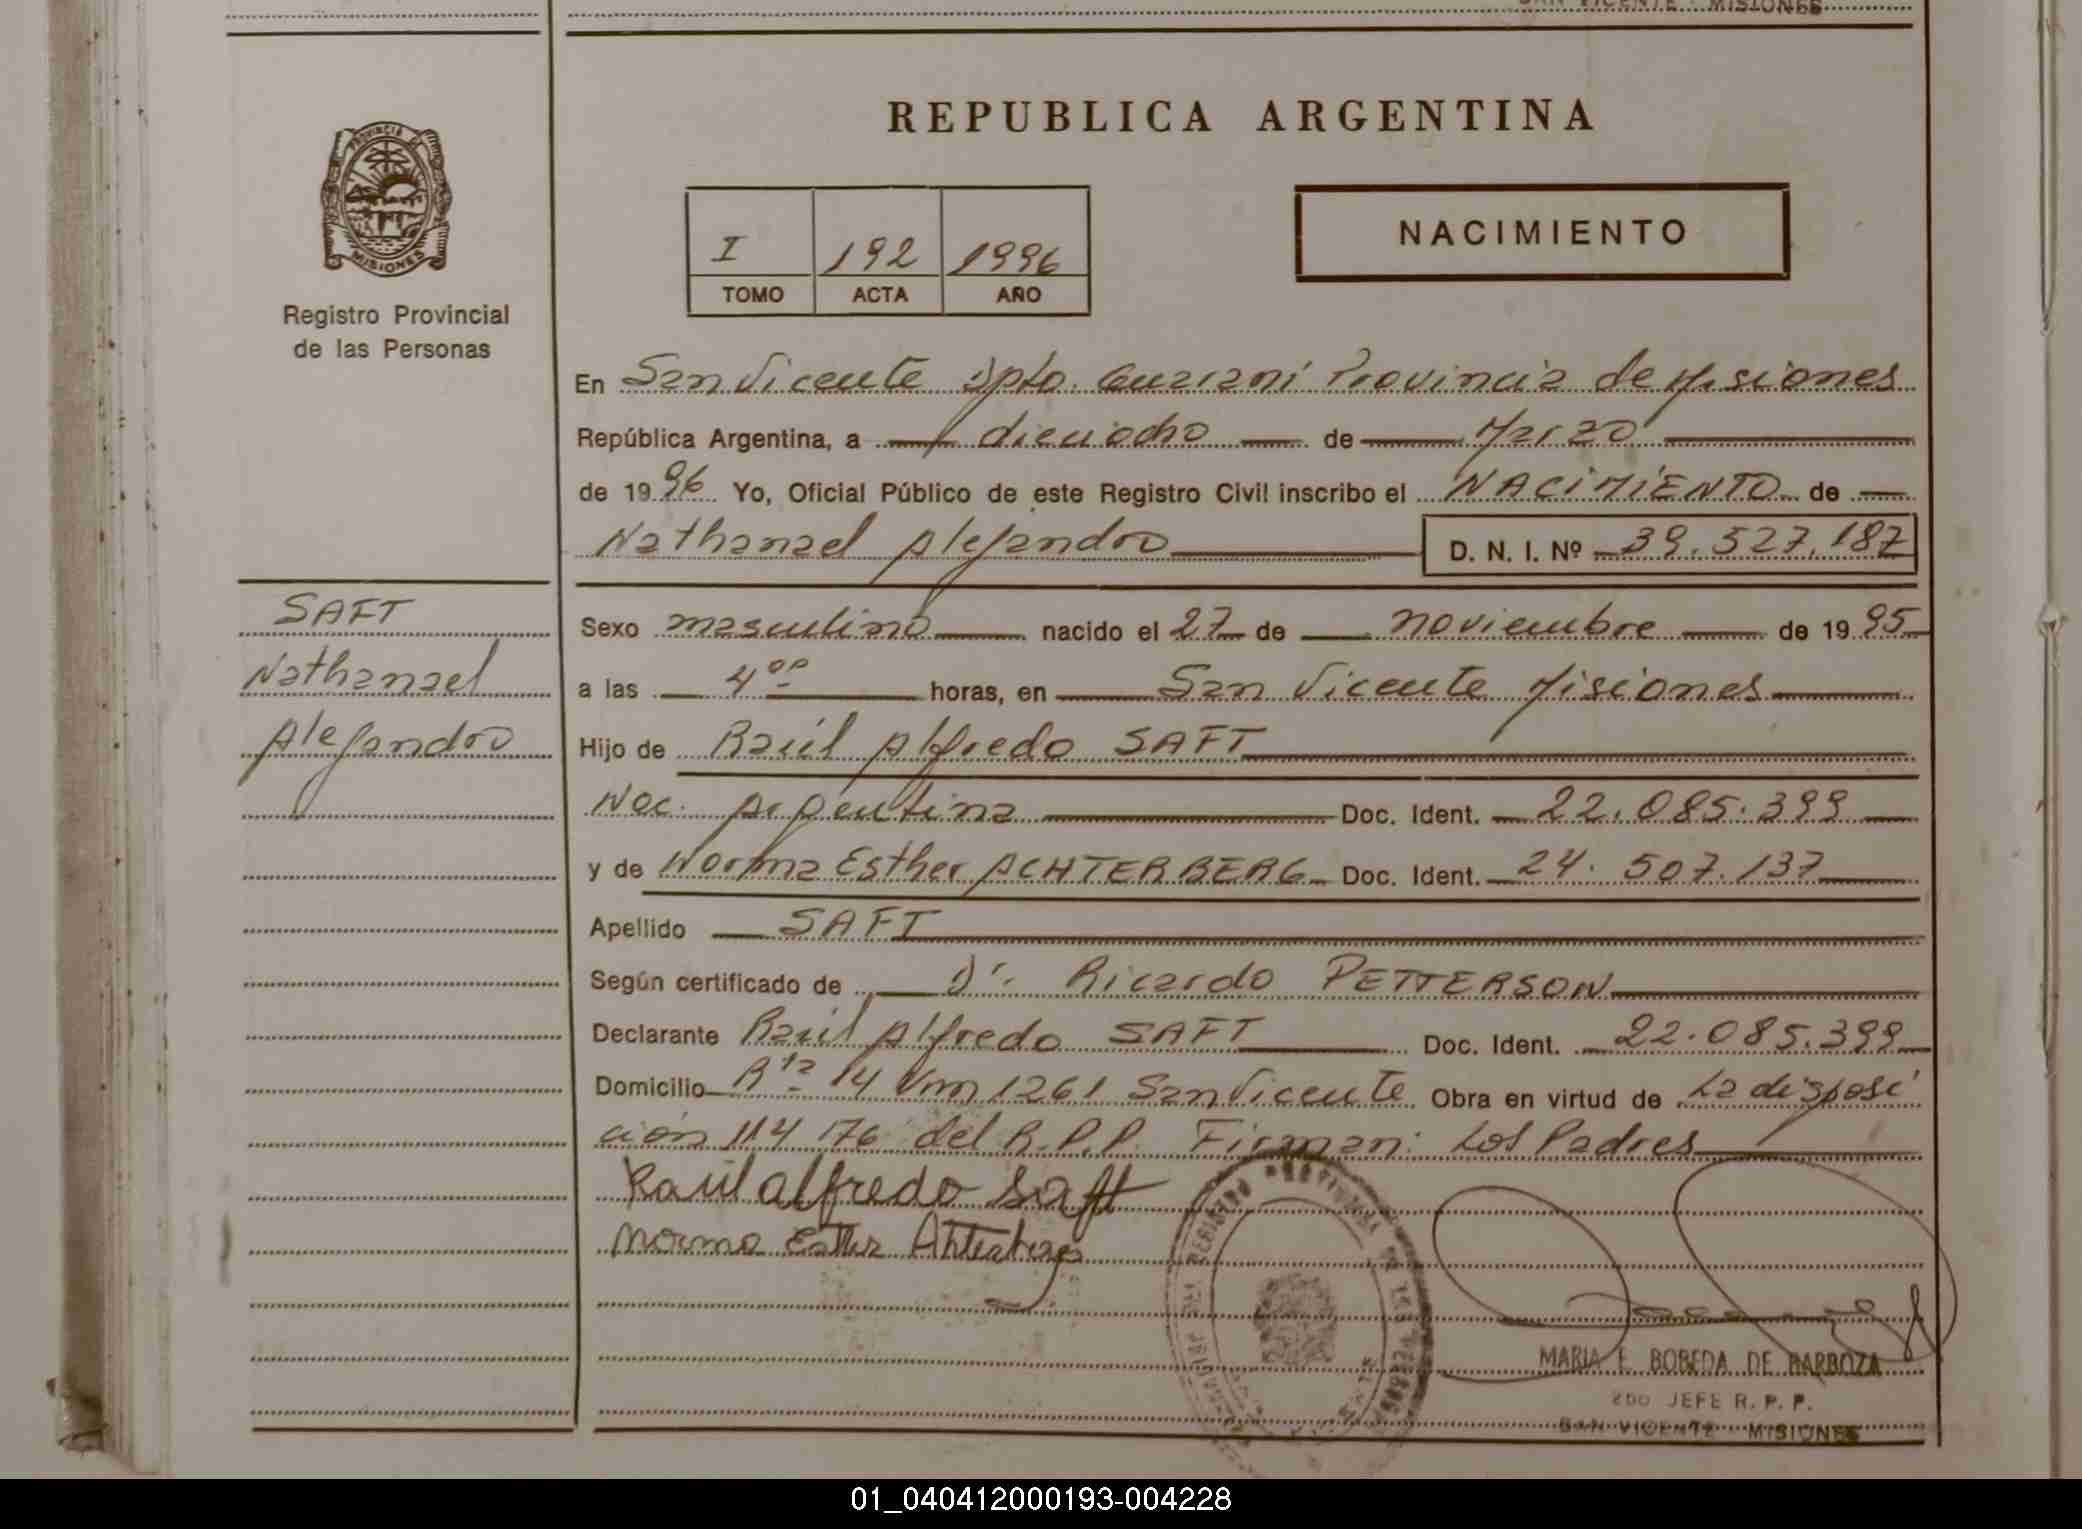 SAN VICENTE - MISIONES
REPUBLICA ARGENTINA
PROVINCIA DE
MISIONES
Registro Provincial
de las Personas
NACIMIENTO
I 192 1996
TOMO ACTA AÑO
En San Vicente Dpto. Guaraní Provincia de Misiones
República Argentina, a dieciocho de Marzo
de 1996 Yo, Oficial Público de este Registro Civil inscribo el NACIMIENTO de
Nathanael Alejandro D. N. I. Nº 39.527.187
SAFT
Nathanael
Alejandro
Sexo masculino nacido el 27 de noviembre de 1995
a las 4 00 horas, en San Vicente Misiones
Hijo de Raúl Alfredo SAFT
Nac. Argentina Doc. Ident. 22.085.399
y de Norma Esther ACHTERBERG Doc. Ident. 24.507.137
Apellido SAFT
Según certificado de Dr. Ricardo PETTERSON
Declarante Raúl Alfredo SAFT Doc. Ident. 22.085.399
Domicilio Rta 14 Km 1261 San Vicente Obra en virtud de La disposi
ción 114 76 del R.P.P. Firman: Los Padres
Raúl alfredo Saft
Norma Esther
MARIA E. BOBEDA DE BARBOZA
2DO JEFE R. P. P.
SAN VICENTE - MISIONES
01_040412000193-004228